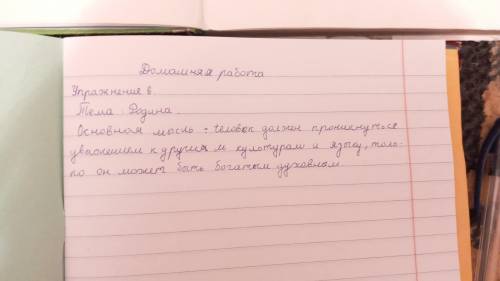 Домашняя работа
Упражнение 6.
Тема: Родина.
Основная мысль: человек должен проникнуться
уважением к другим культурам и языку, толь-
ко он может быть богатым духовном